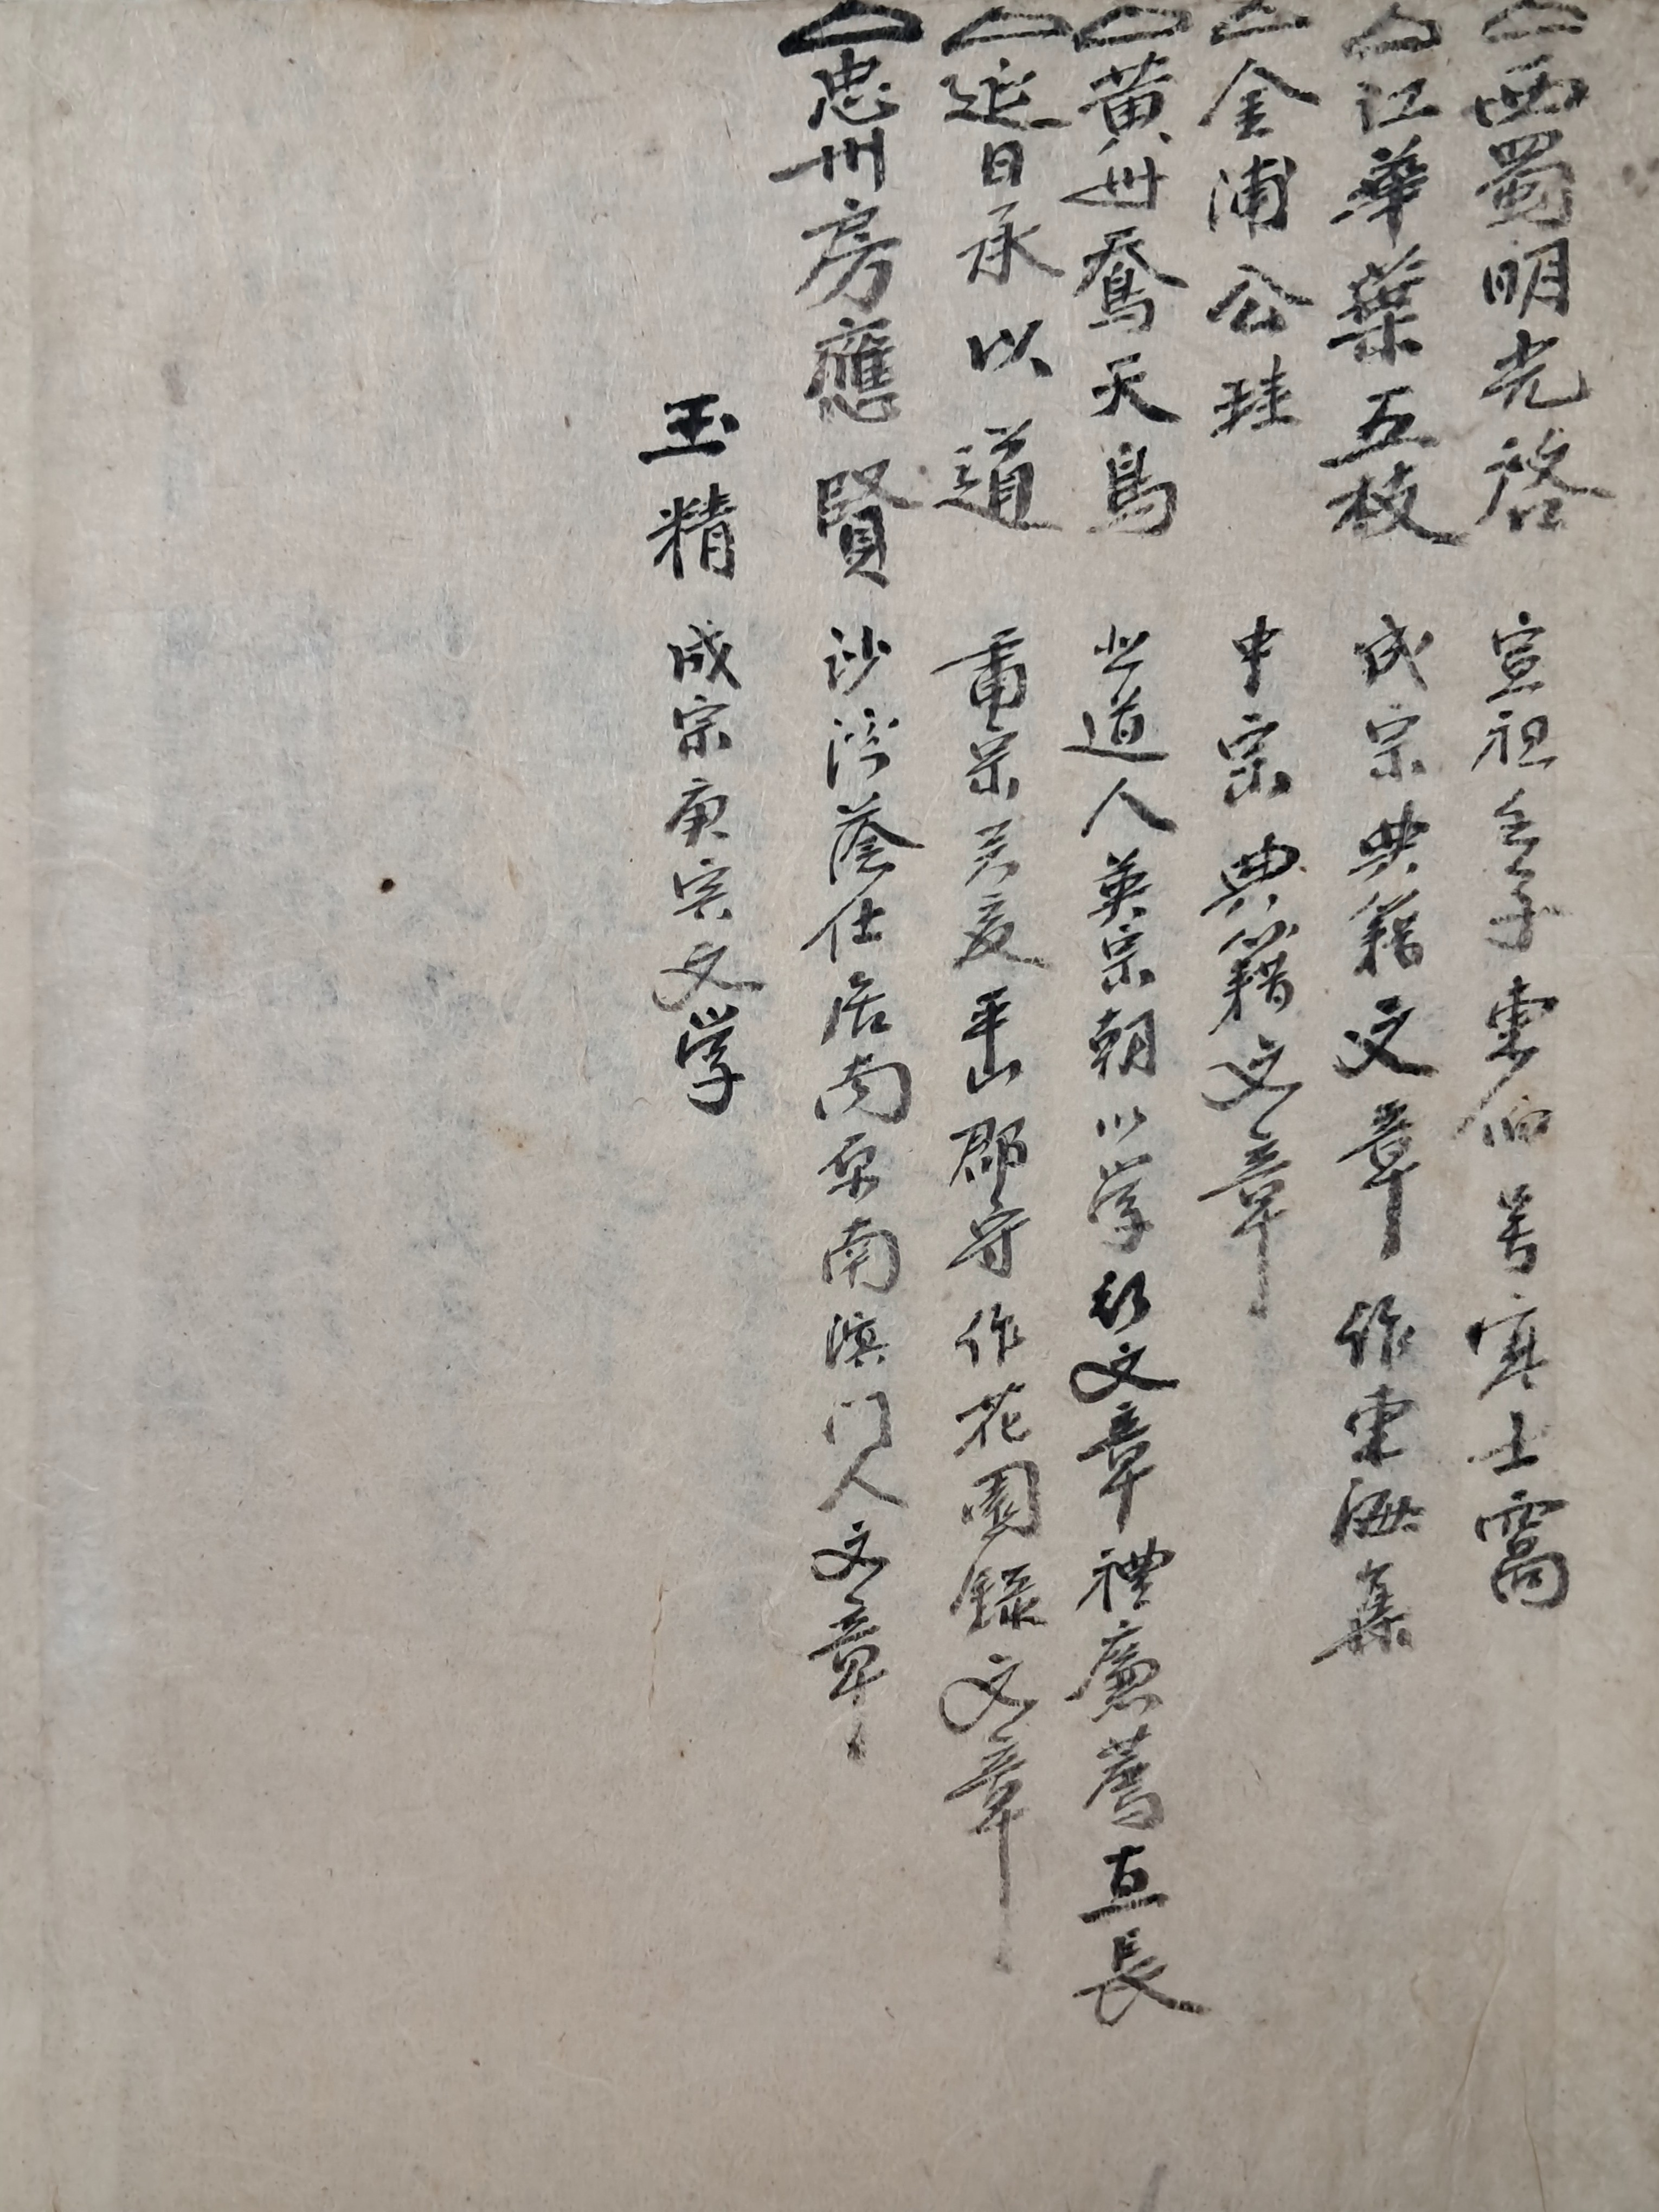 西蜀明光啓 宣祖 子 東伯 号寒士窩
江華葉五枝 成宗典籍文章作東海集
金浦公珪 中宗典籍文章
黃州喬天鳥 道人英宗朝以学行文章禮廉薦直長
延日承以道 平山郡守作花園録文章
忠州房應賢 沙溪蔭仕居南原南溟门人文章
玉精 成宗庚 文学